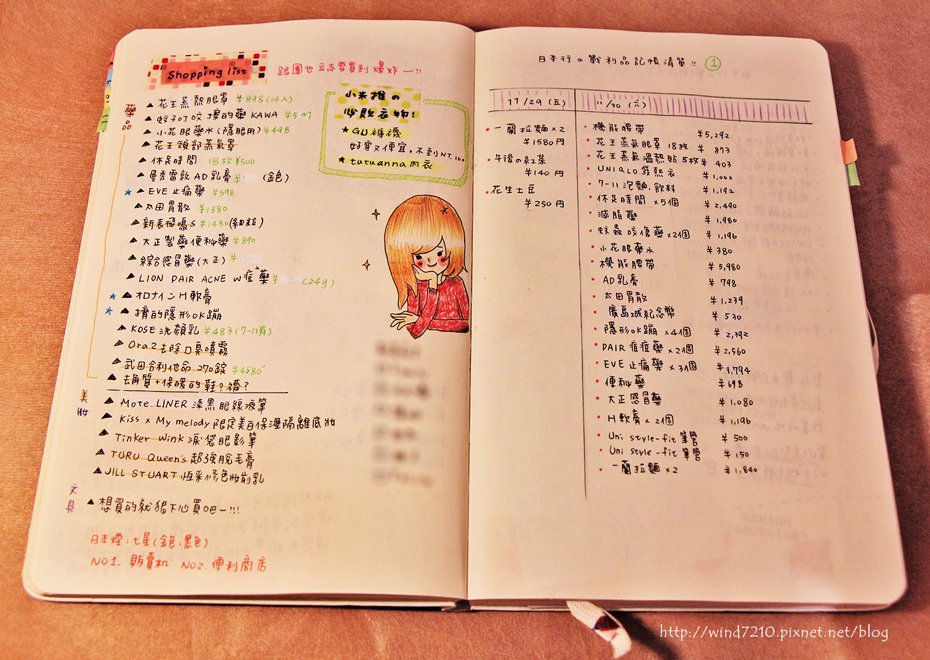 Shopping list
跟團也立志要買到爆炸－!!
藥品
▲花王蒸熱眼罩 ¥898(14入)
▲蚊子叮咬 擦的藥 KAWA
▲小花眼藥水(隱眼用)¥498
▲花王頸部蒸氣罩
▲休足時間 18枚¥500
AD乳膏 (金色)
★▲EVE止痛藥 ¥598
▲太田胃散 ¥1380
S ¥1480(細粒)
▲大正製藥便秘藥 ¥890
▲綜合感冒藥(大正)
▲LION PAIR ACNE W痘藥 (24g)
★▲オロナインH軟膏
★▲擠的隱形OK蹦
▲KOSE洗顏乳 ¥483(7-11有)
▲Ora2去除口臭噴霧
▲武田合利他命 270錠 ¥4580
▲去角質+保暖的鞋?襪?
美妝
▲Mote LINER 漆黑眼線液筆
▲Kiss x My melody限定美白保濕隔離底妝
▲Tinker Wink 淚袋眼影筆
▲TORU Queen's 超強脫毛膏
▲JILL STUART 修色妝前乳
文具
▲想買的就狠下心買吧－!!!
日本煙:七星(金色.黑色)
NO1. 販賣機 NO2. 便利商店
小米推の
必敗衣物!
★GU褲襪
好穿又便宜,不到NT.100
★tutuanna內衣
日本行の戰利品記帳清單!! ①
11/29 (五)
•一蘭拉麵×2
¥1580円
•午後の紅茶
¥140 円
•花生土豆
¥250 円
11/30 (六)
•機能腰帶 ¥5,292
•花王蒸氣眼罩 18枚 ¥873
•花王蒸氣溫熱貼 5枚 ¥403
•UNIQLO發熱衣 ¥1,000
•7-11泡麵.飲料 ¥1,192
•休足時間 ×5個 ¥2,490
•減脂藥 ¥1,980
•蚊蟲咬傷藥×2個 ¥1,196
•小花眼藥水 ¥380
•機能腰帶 ¥5,980
•AD乳膏 ¥798
•太田胃散 ¥1,239
•廣島城紀念幣 ¥530
•隱形OK蹦 ×4個 ¥2,392
•PAIR痘痘藥 ×2個 ¥2,560
•EVE止痛藥 ×3個 ¥1,794
•便秘藥 ¥698
•大正感冒藥 ¥1,080
•H軟膏 ×2個 ¥1,196
•Uni style-fit 筆管 ¥500
•Uni style-fit 筆管 ¥150
•一蘭拉麵×2 ¥1,840
http://wind7210.pixnet.net/blog